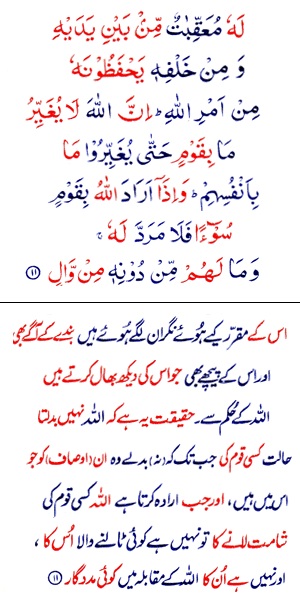 لَهٗ مُعَقِّبٰتٌ مِّنْۢ بَيْنِ يَدَيْهِ
وَ مِنْ خَلْفِهٖ يَحْفَظُوْنَهٗ
مِنْ اَمْرِ اللّٰهِ ؕ اِنَّ اللّٰهَ لَا يُغَيِّرُ
مَا بِقَوْمٍ حَتّٰى يُغَيِّرُوْا مَا
بِاَنْفُسِهِمْ ؕ وَاِذَاۤ اَرَادَ اللّٰهُ بِقَوْمٍ
سُوْٓءًا فَلَا مَرَدَّ لَهٗ ۚ
وَمَا لَهُمْ مِّنْ دُوْنِهٖ مِنْ وَّالٍ ﴿۱۱﴾
اس کے مقرّر کیے ہُوئے نگران لگے ہُوئے ہیں بندے کے آگے بھی
اور اس کے پیچھے بھی جو اس کی دیکھ بھال کرتے ہیں
اللہ کے حُکم سے۔ حقیقت یہ ہے کہ اللہ نہیں بدلتا
حالت کسی قوم کی جب تک کہ (نہ) بدلے وہ ان (اوصاف) کو جو
اس میں ہیں، اور جب ارادہ کرتا ہے اللہ کسی قوم کی
شامت لانے کا تو نہیں ہے کوئی ٹالنے والا اُس کا،
اور نہیں ہے اُن کا اللہ کے مقابلہ میں کوئی مددگار ﴿۱۱﴾